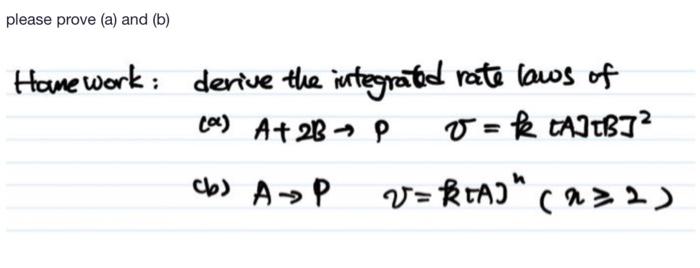 please prove (a) and (b)
Homework: derive the integrated rate laws of
(a) A + 2B → P v = k [A][B]²
(b) A → P v = k[A]ⁿ (n ≥ 2)